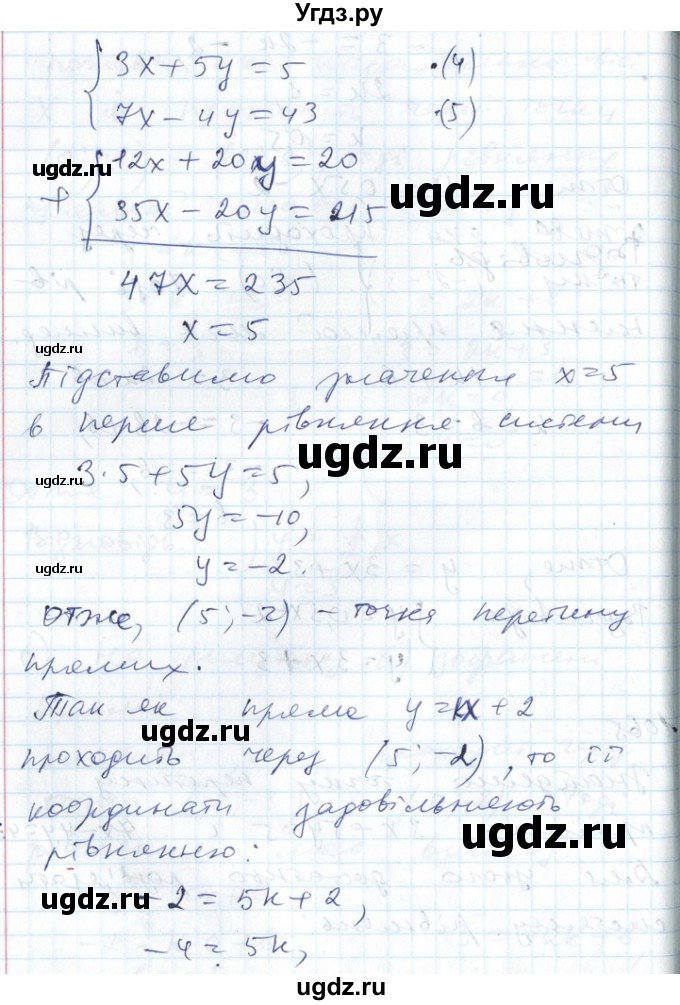 Угдз.ру
{ 3x + 5y = 5 ·(4)
7x - 4y = 43 ·(5)
+ { 12x + 20y = 20
35x - 20y = 215
47x = 235
x = 5
Підставимо значення x = 5
в перше рівняння системи
3·5 + 5y = 5,
5y = -10,
y = -2.
Отже, (5; -2) - точка перетину
прямих.
Так як пряма y = kx + 2
проходить через (5; -2), то її
координати задовільняють
рівнянню:
-2 = 5k + 2,
-4 = 5k,
ugdz.ru
ugdz.ru
ugdz.ru
ugdz.ru
ugdz.ru
ugdz.ru
ugdz.ru
ugdz.ru
ugdz.ru
ugdz.ru
ugdz.ru
ugdz.ru